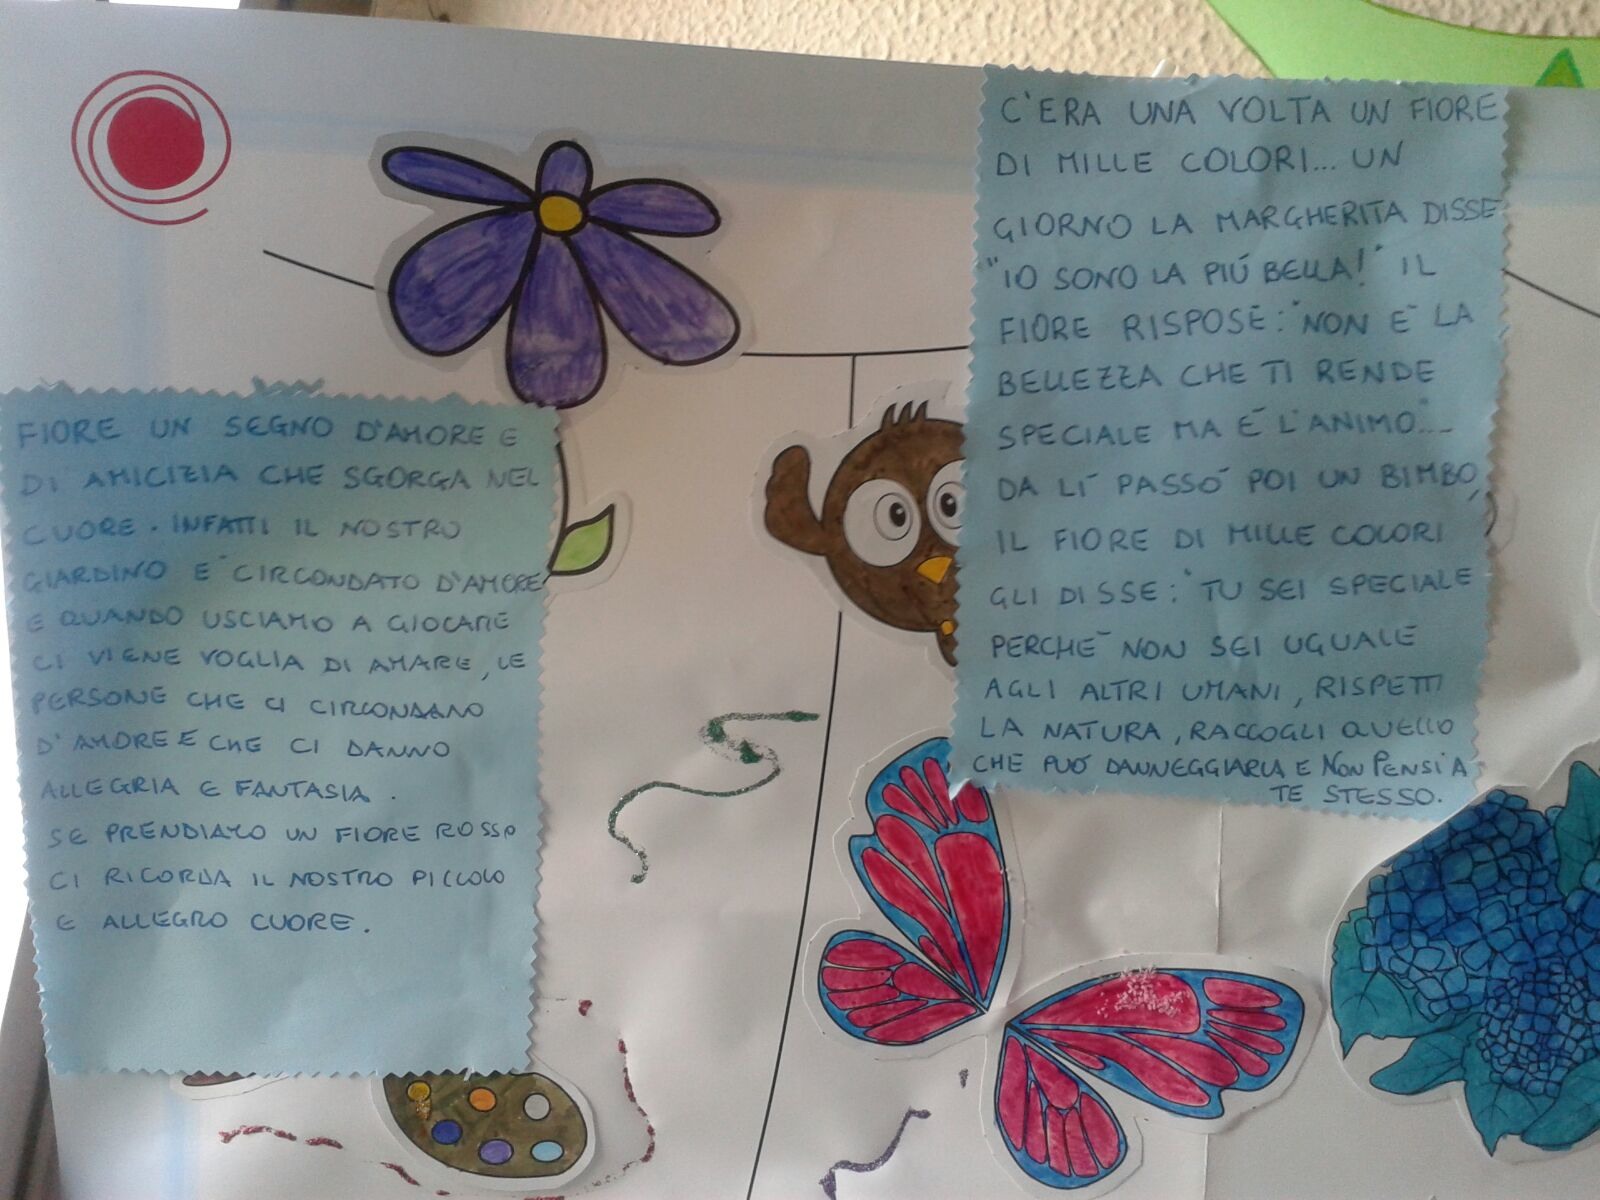 FIORE UN SEGNO D'AMORE E
DI AMICIZIA CHE SGORGA NEL
CUORE. INFATTI IL NOSTRO
GIARDINO E' CIRCONDATO D'AMORE
E QUANDO USCIAMO A GIOCARE
CI VIENE VOGLIA DI AMARE, LE
PERSONE CHE CI CIRCONDANO
D'AMORE E CHE CI DANNO
ALLEGRIA E FANTASIA.
SE PRENDIAMO UN FIORE ROSSO
CI RICORDA IL NOSTRO PICCOLO
E ALLEGRO CUORE.
C'ERA UNA VOLTA UN FIORE
DI MILLE COLORI... UN
GIORNO LA MARGHERITA DISSE
"IO SONO LA PIÚ BELLA!" IL
FIORE RISPOSE: "NON E' LA
BELLEZZA CHE TI RENDE
SPECIALE MA E' L'ANIMO"...
DA LI' PASSO' POI UN BIMBO,
IL FIORE DI MILLE COLORI
GLI DISSE: "TU SEI SPECIALE
PERCHE' NON SEI UGUALE
AGLI ALTRI UMANI, RISPETTI
LA NATURA, RACCOGLI QUELLO
CHE PUO' DANNEGGIARLA E NON PENSI A
TE STESSO.